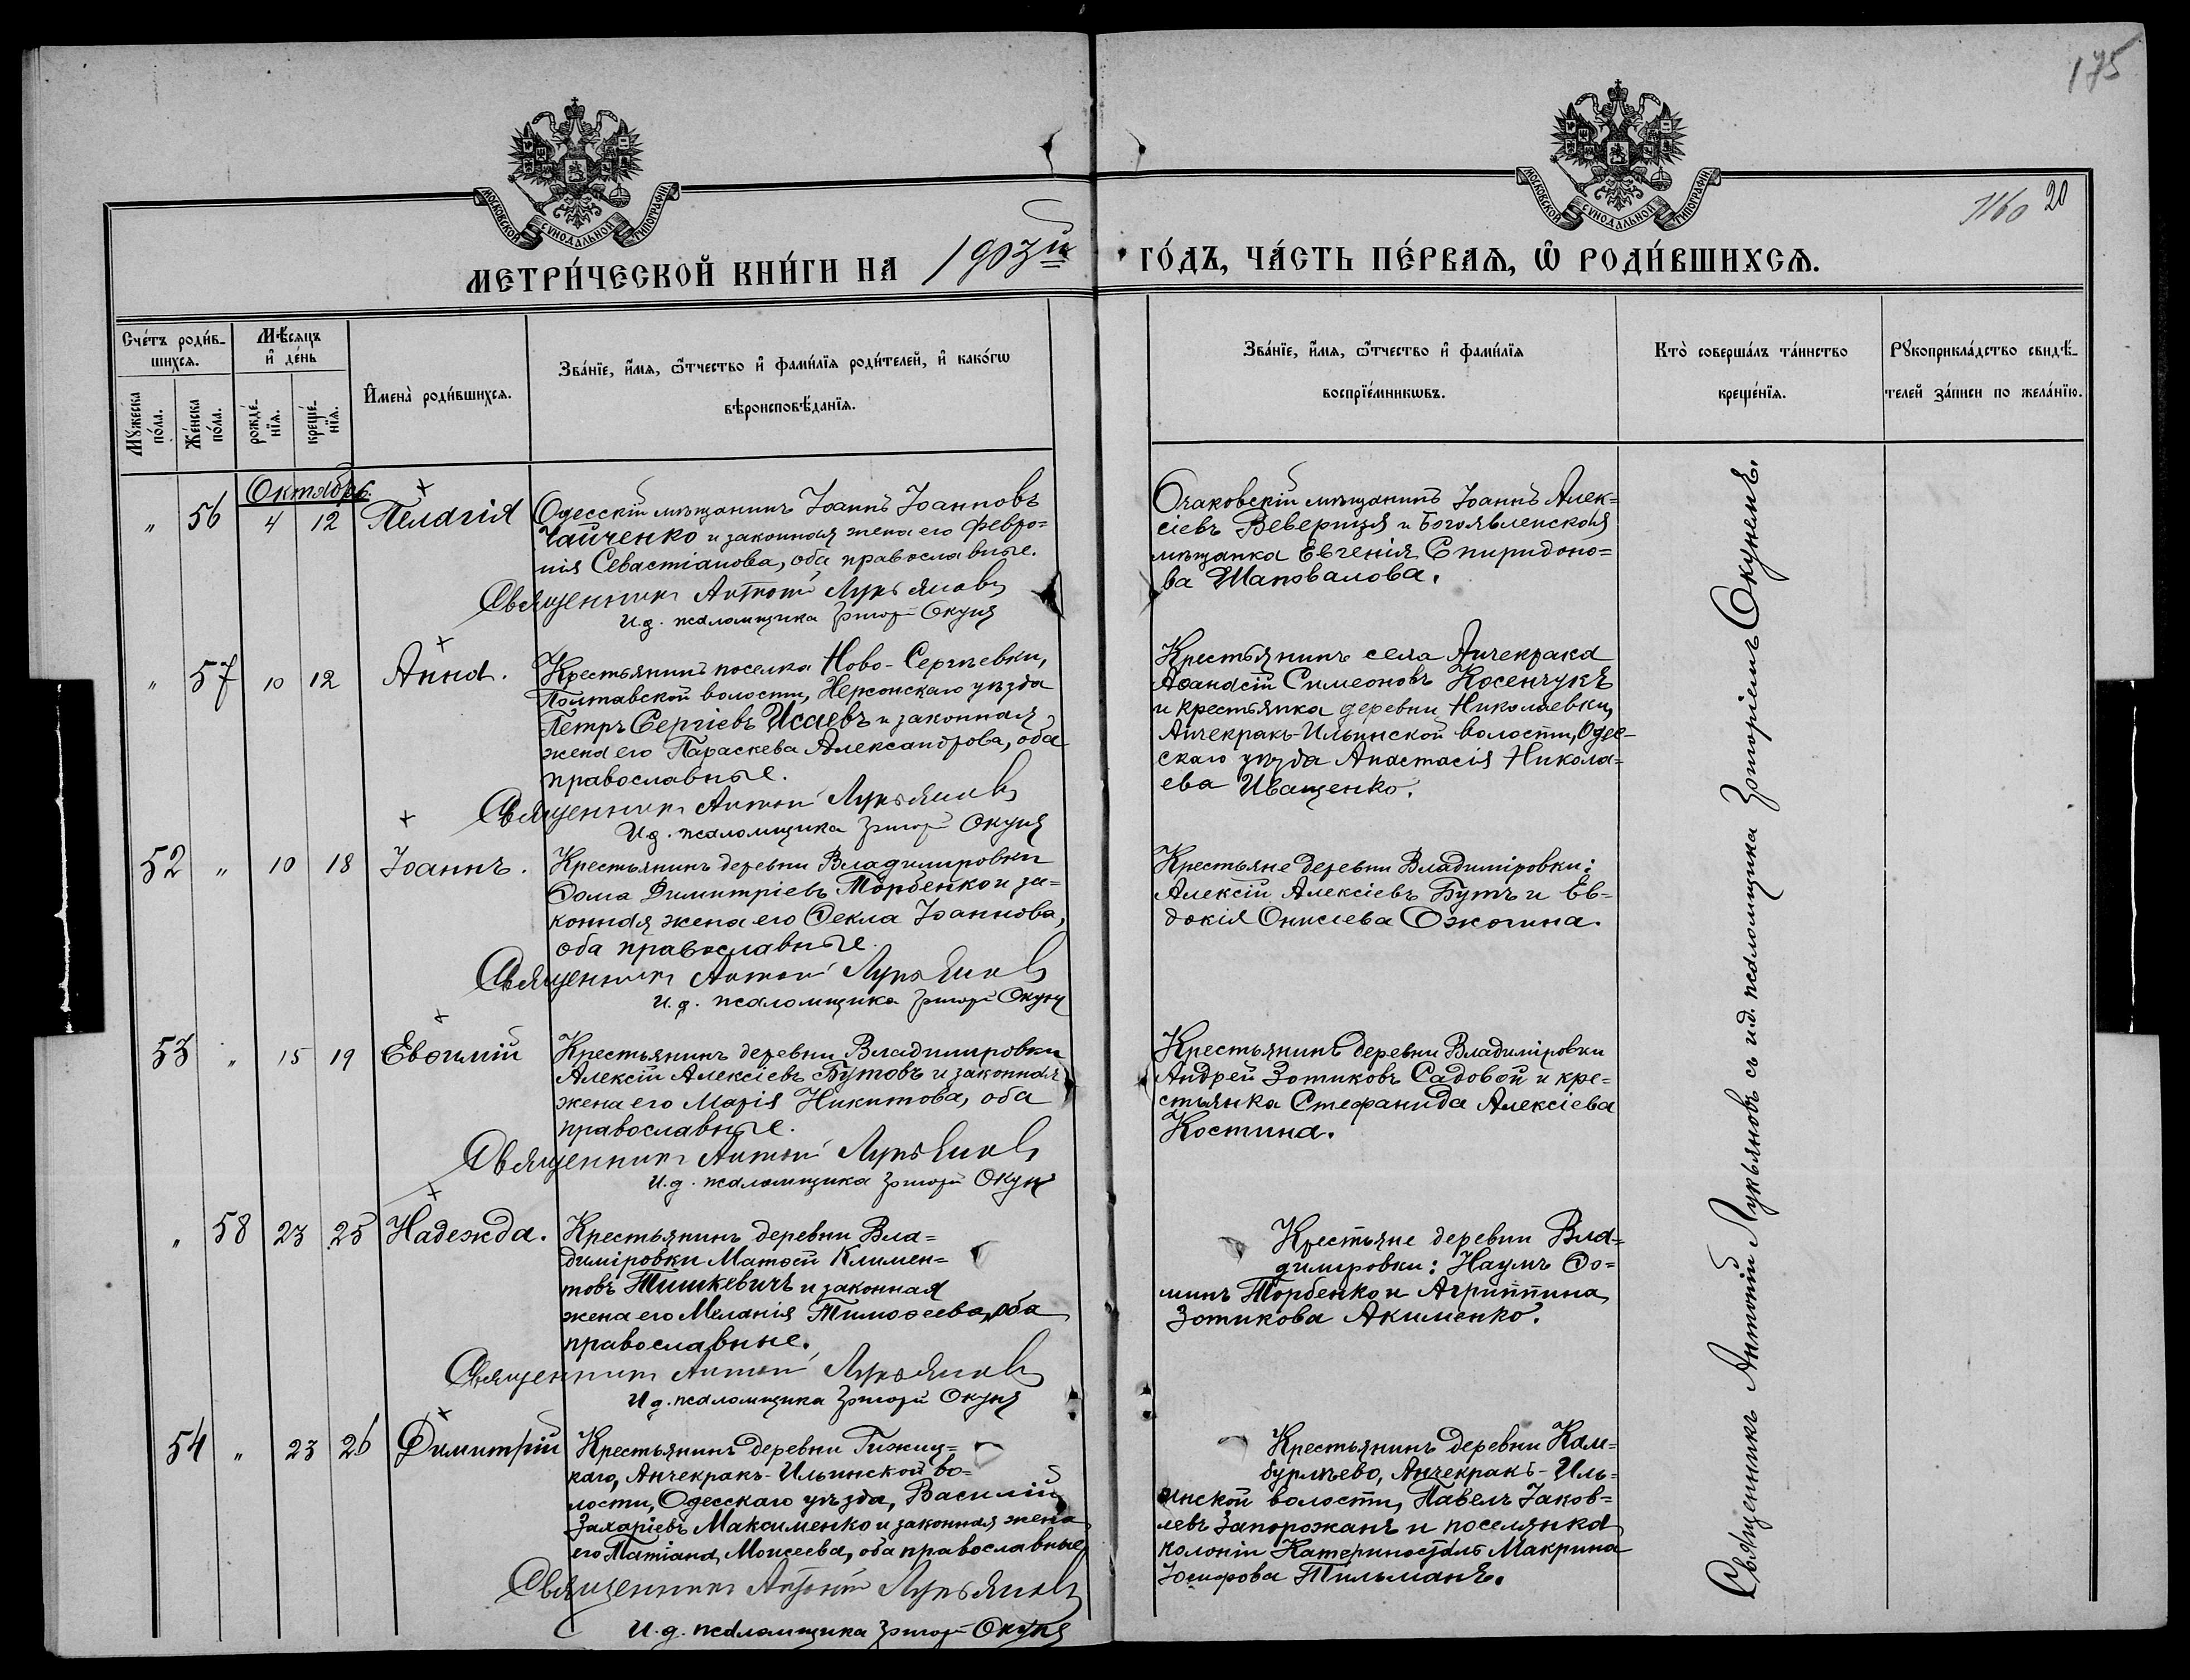 175
1160 20
МОСКОВСКОЙ СѴНОДАЛЬНОЙ ТИПОГРАФІИ
МОСКОВСКОЙ СѴНОДАЛЬНОЙ ТИПОГРАФІИ
МЕТРИ́ЧЕСКОЙ КНИ́ГИ НА 1903й ГО́ДЪ, ЧА́СТЬ ПЕ́РВАѦ, Ѡ҆ РОДИ́ВШИХСѦ.
Сче́тъ роди́в-
шихсѧ.
Мꙋ́жеска по́ла.
Же́нска по́ла.
Мѣ́сѧцъ
и҆ де́нь
рожде́-
нїѧ.
креще́-
нїѧ.
И҆мена̀ роди́вшихсѧ.
Зва́нїе, и҆́мѧ, ѻ҆́тчество и҆ фами́лїѧ роди́телей, и҆ како́гѡ
вѣроисповѣ́данїѧ.
Зва́нїе, и҆́мѧ, ѻ҆́тчество и҆ фами́лїѧ
воспрїе́мникѡвъ.
Кто̀ соверша́лъ та́инство
креще́нїѧ.
Рꙋкоприкла́дство свидѣ́-
телей за́писи по жела́нїю.
Октябрь.
" 56 4 12 Пелагія
Одесскій мѣщанинъ Іоаннъ Іоанновъ
Чайченко и законная жена его Февро=
нія Севастіанова, оба православные.
Священникъ Антоній Лукьяновъ
И.д. псаломщика Григорій Окунь
Очаковскій мѣщанинъ Іоаннъ Алек=
сіевъ Веверица и Богоявленская
мѣщанка Евгенія Спиридоно=
ва Шаповалова.
" 57 10 12 Анна.
Крестьянинъ поселка Ново-Сергѣевки,
Полтавской волости, Херсонскаго уѣзда
Петръ Сергіевъ Исаевъ и законная
жена его Параскева Александрова, оба
православные.
Священникъ Антоній Лукьяновъ
И.д. псаломщика Григорій Окунь
Крестьянинъ села Анчекрака
Аѳанасій Симеоновъ Косенчукъ
и крестьянка деревни Николаевки,
Анчекракъ-Ильинской волости, Одес-
скаго уѣзда Анастасія Никола=
ева Иващенко.
52 " 10 18 Іоаннъ.
Крестьянинъ деревни Владимировки
Ѳома Димитріевъ Торбенко и за=
конная жена его Ѳекла Іоаннова,
оба православные.
Священникъ Антоній Лукьяновъ
И.д. псаломщика Григорій Окунь
Крестьяне деревни Владиміровки:
Алексій Алексіевъ Бутъ и Ев=
докія Онисіева Ожогина.
53 " 15 19 Евѳимій
Крестьянинъ деревни Владимировки
Алексій Алексіевъ Бутовъ и законная
жена его Марія Никитова, оба
православные.
Священникъ Антоній Лукьяновъ
И.д. псаломщика Григорій Окунь
Крестьянинъ деревни Владиміровки
Андрей Зотиковъ Садовой и кре=
стьянка Стефанида Алексіева
Костина.
" 58 23 25 Надежда.
Крестьянинъ деревни Вла=
диміровки Матѳій Климен=
товъ Тишкевичъ и законная
жена его Меланія Тимоѳеева, оба
православные.
Священникъ Антоній Лукьяновъ
И.д. псаломщика Григорій Окунь
Крестьяне деревни Вла=
димировки: Наумъ Ѳо=
минъ Торбенко и Агриппина
Зотикова Акименко.
54 " 23 26 Димитрій
Крестьянинъ деревни Гижиц=
каго, Анчекракъ-Ильинской во=
лости, Одесскаго уѣзда, Василій
Захаріевъ Максименко и законная жена
его Татіана Моисеева, оба православные
Священникъ Антоній Лукьяновъ
И.д. псаломщика Григорій Окунь
Крестьянинъ деревни Кам=
бурлѣево, Анчекракъ-Иль=
инской волости, Павелъ Іаков=
левъ Запорожанъ и поселянка
колоніи Катериносталь Макрина
Іосифова Тильманъ.
Священникъ Антоній Лукьяновъ съ и.д. псаломщика Григоріемъ Окунемъ.